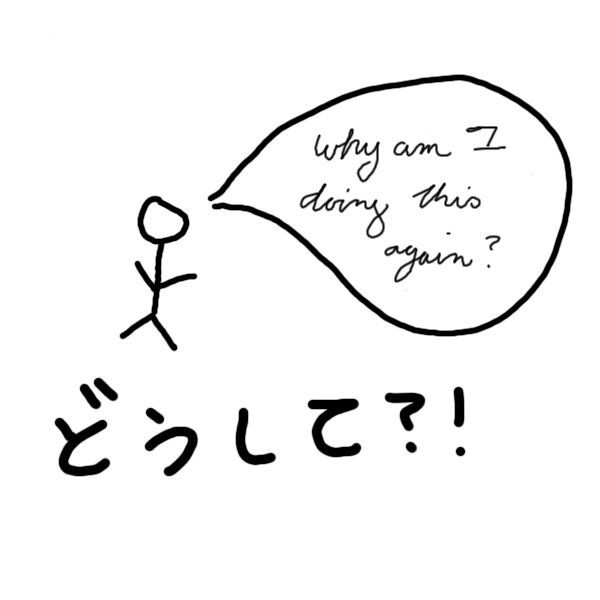 why am I
doing this
again?
どうして?!